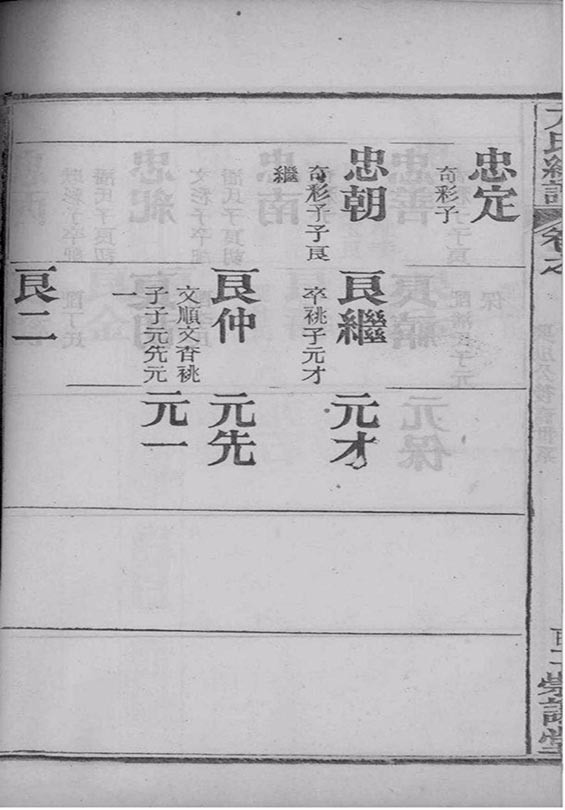 忠定
奇彩子
忠朝
奇彩子子良
繼
良繼
卒祧子元才
元才
良仲
文順文香祧
子子元先元
一
元先
元一
良二